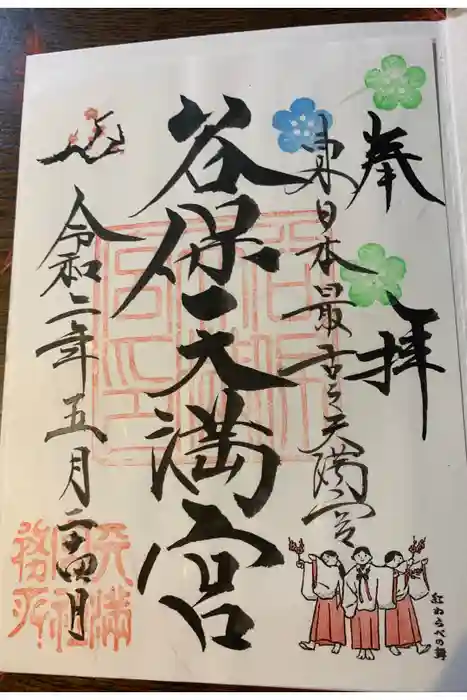 奉拝
東日本最古之天満宮
谷保天満宮
令和二年五月二十四日
天満
宮社
務所
紅わらべの舞